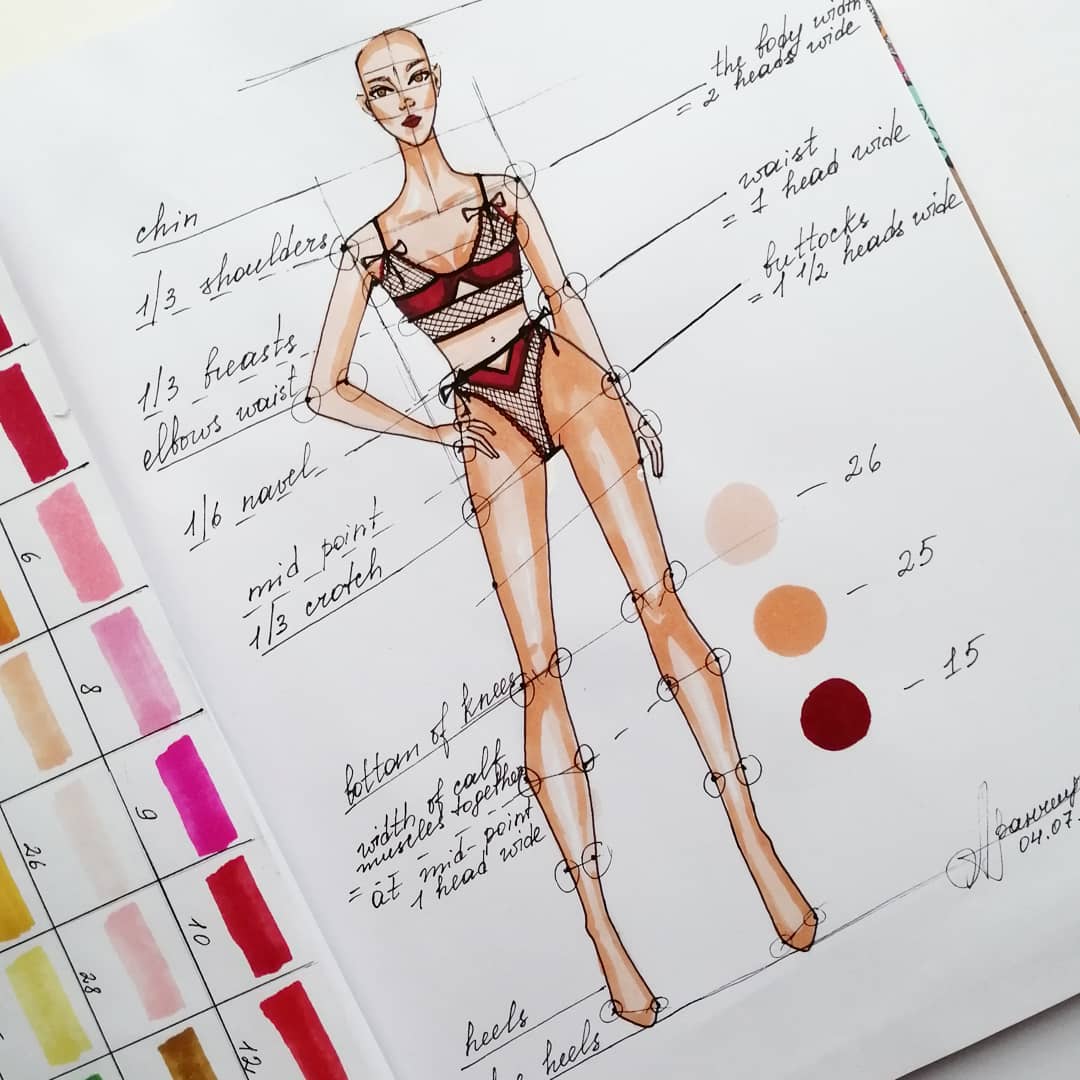 the body width
= 2 heads wide
waist
= 1 head wide
buttocks
= 1 1/2 heads wide
chin
1/3 shoulders
1/3 breasts
elbows waist
1/6 navel
mid point
1/3 crotch
bottom of knees
width of calf
muscles together
= at mid-point
1 head wide
heels
heels
26
25
15
04.07.
6
8
9
26
10
28
12